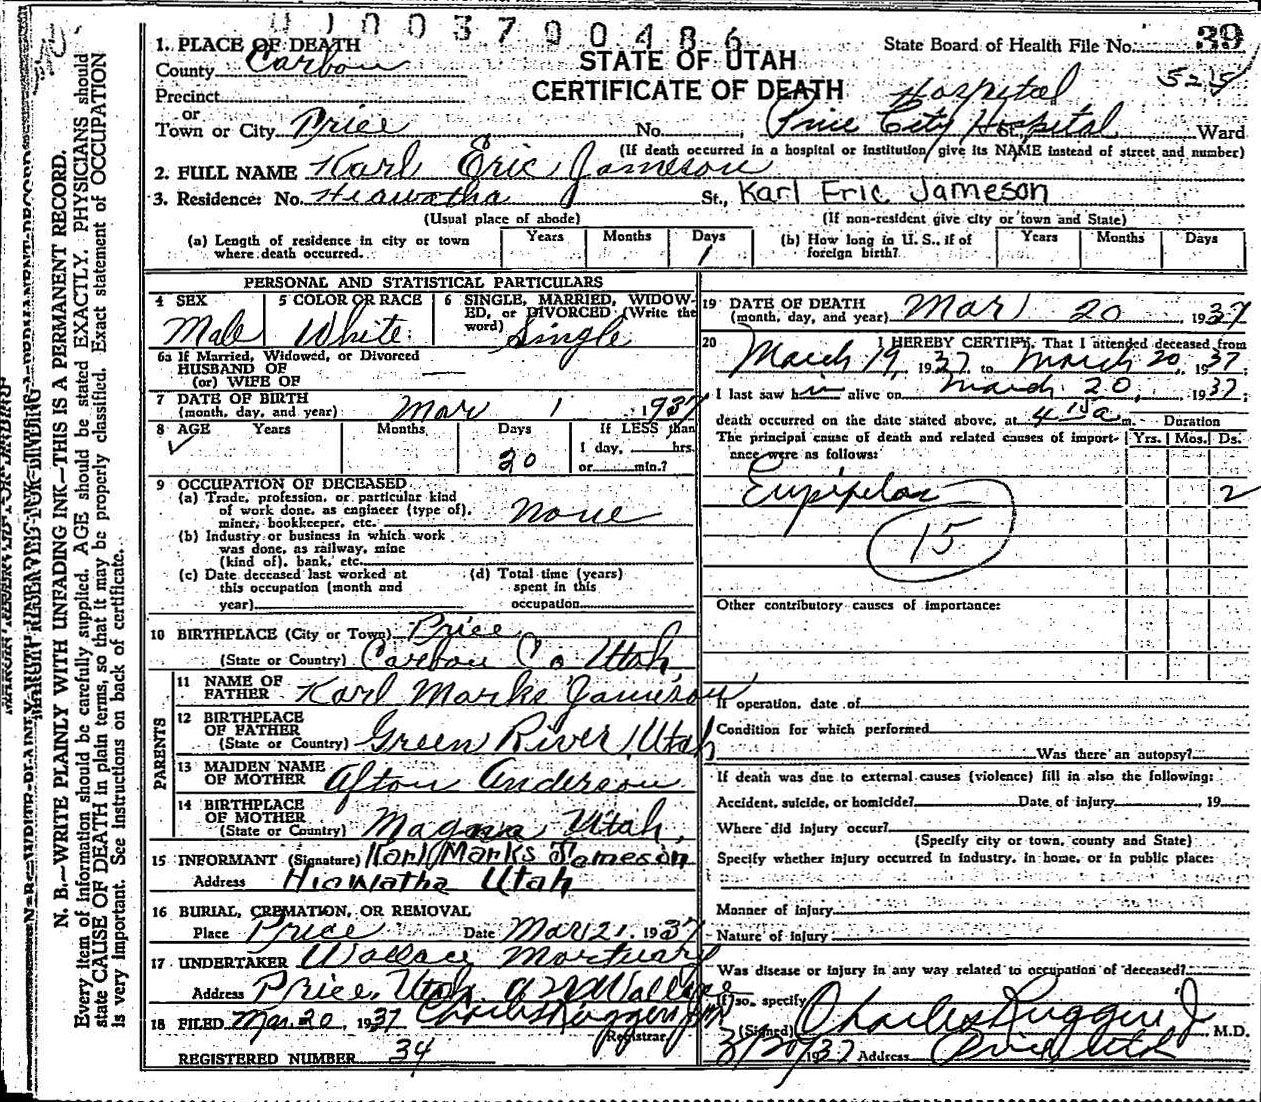 U J 0 0 3 7 9 0 4 8 6
1. PLACE OF DEATH
County Carbon
Precinct
or
Town or City Price
STATE OF UTAH
CERTIFICATE OF DEATH
State Board of Health File No. 39
Hospital
No. Price City Hospital St., Ward
(If death occurred in a hospital or institution, give its NAME instead of street and number)
2. FULL NAME Karl Eric Jameson
3. Residence: No. Hiawatha St., Karl Eric Jameson
(Usual place of abode) (If non-resident give city or town and State)
(a) Length of residence in city or town where death occurred. Years Months Days 1
(b) How long in U. S., if of foreign birth? Years Months Days
PERSONAL AND STATISTICAL PARTICULARS
4 SEX Male
5 COLOR OR RACE White
6 SINGLE, MARRIED, WIDOWED, or DIVORCED (Write the word) Single
6a If Married, Widowed, or Divorced
HUSBAND OF
(or) WIFE OF
7 DATE OF BIRTH
(month, day, and year) Mar 1 1937
8 AGE Years Months Days 20 If LESS than
1 day, hrs.
or min.?
9 OCCUPATION OF DECEASED
(a) Trade, profession, or particular kind
of work done, as engineer (type of),
miner, bookkeeper, etc. none
(b) Industry or business in which work
was done, as railway, mine
(kind of), bank, etc.
(c) Date deceased last worked at
this occupation (month and
year)
(d) Total time (years)
spent in this
occupation
10 BIRTHPLACE (City or Town) Price
(State or Country) Carbon Co Utah
PARENTS
11 NAME OF
FATHER Karl Marks Jameson
12 BIRTHPLACE
OF FATHER
(State or Country) Green River, Utah
13 MAIDEN NAME
OF MOTHER Afton Anderson
14 BIRTHPLACE
OF MOTHER
(State or Country) Magna Utah
15 INFORMANT (Signature) Karl Marks Jameson
Address Hiawatha Utah
16 BURIAL, CREMATION, OR REMOVAL
Place Price Date Mar 21. 1937
17 UNDERTAKER Wallace Mortuary
Address Price, Utah.
18 FILED Mar. 20, 1937
Registrar
REGISTERED NUMBER 34
19 DATE OF DEATH
(month, day, and year) Mar 20 1937
20 I HEREBY CERTIFY, That I attended deceased from
March 19, 1937 to March 20, 1937;
I last saw him alive on March 20, 1937;
death occurred on the date stated above, at 4 15 a m. Duration
The principal cause of death and related causes of importance were as follows: Yrs. Mos. Ds.
Erysipelas 2
15
Other contributory causes of importance:
If operation, date of
Condition for which performed
Was there an autopsy?
If death was due to external causes (violence) fill in also the following:
Accident, suicide, or homicide? Date of injury , 19
Where did injury occur?
(Specify city or town, county and State)
Specify whether injury occurred in industry, in home, or in public place:
Manner of injury
Nature of injury
Was disease or injury in any way related to occupation of deceased?
If so, specify
(Signed) Charles Ruggeri Jr M.D.
3/20/1937 Address Price Utah
N. B.—WRITE PLAINLY WITH UNFADING INK—THIS IS A PERMANENT RECORD.
Every item of information should be carefully supplied. AGE should be stated EXACTLY. PHYSICIANS should
state CAUSE OF DEATH in plain terms, so that it may be properly classified. Exact statement of OCCUPATION
is very important. See instructions on back of certificate.